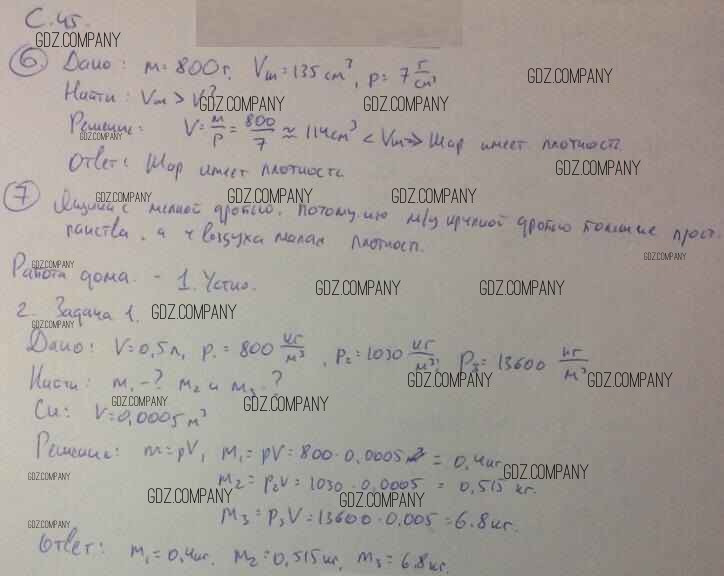 С.45.
GDZ.COMPANY
⑥ Дано: m=800г, Vш=135 см³, ρ=7 г/см³
GDZ.COMPANY
Найти: Vш > V?
GDZ.COMPANY GDZ.COMPANY
Решение: V=m/ρ=800/7≈114см³ < Vш => Шар имеет плотность
GDZ.COMPANY
Ответ: Шар имеет плотность
GDZ.COMPANY
GDZ.COMPANY GDZ.COMPANY GDZ.COMPANY
⑦ Ящик с мелкой дробью. Потому что м/у крупной дробью больше прост.
ранства, а у воздуха малая плотност.
GDZ.COMPANY
GDZ.COMPANY
Работа дома. - 1. Устно.
GDZ.COMPANY GDZ.COMPANY
2. Задача 1.
GDZ.COMPANY
GDZ.COMPANY
Дано: V=0,5л, ρ₁=800 кг/м³, ρ₂=1030 кг/м³, ρ₃=13600 кг/м³
Найти: m₁-? m₂ и m₃-?
GDZ.COMPANY GDZ.COMPANY
GDZ.COMPANY GDZ.COMPANY
Си: V=0,0005м³
Решение: m=ρV, m₁=ρV=800·0,0005=0,4кг
GDZ.COMPANY GDZ.COMPANY
m₂=ρ₂V=1030·0,0005=0,515 кг.
GDZ.COMPANY GDZ.COMPANY
m₃=ρ₃V=13600·0,005=6.8кг.
GDZ.COMPANY
Ответ: m₁=0,4кг. m₂=0,515кг, m₃=6.8кг.